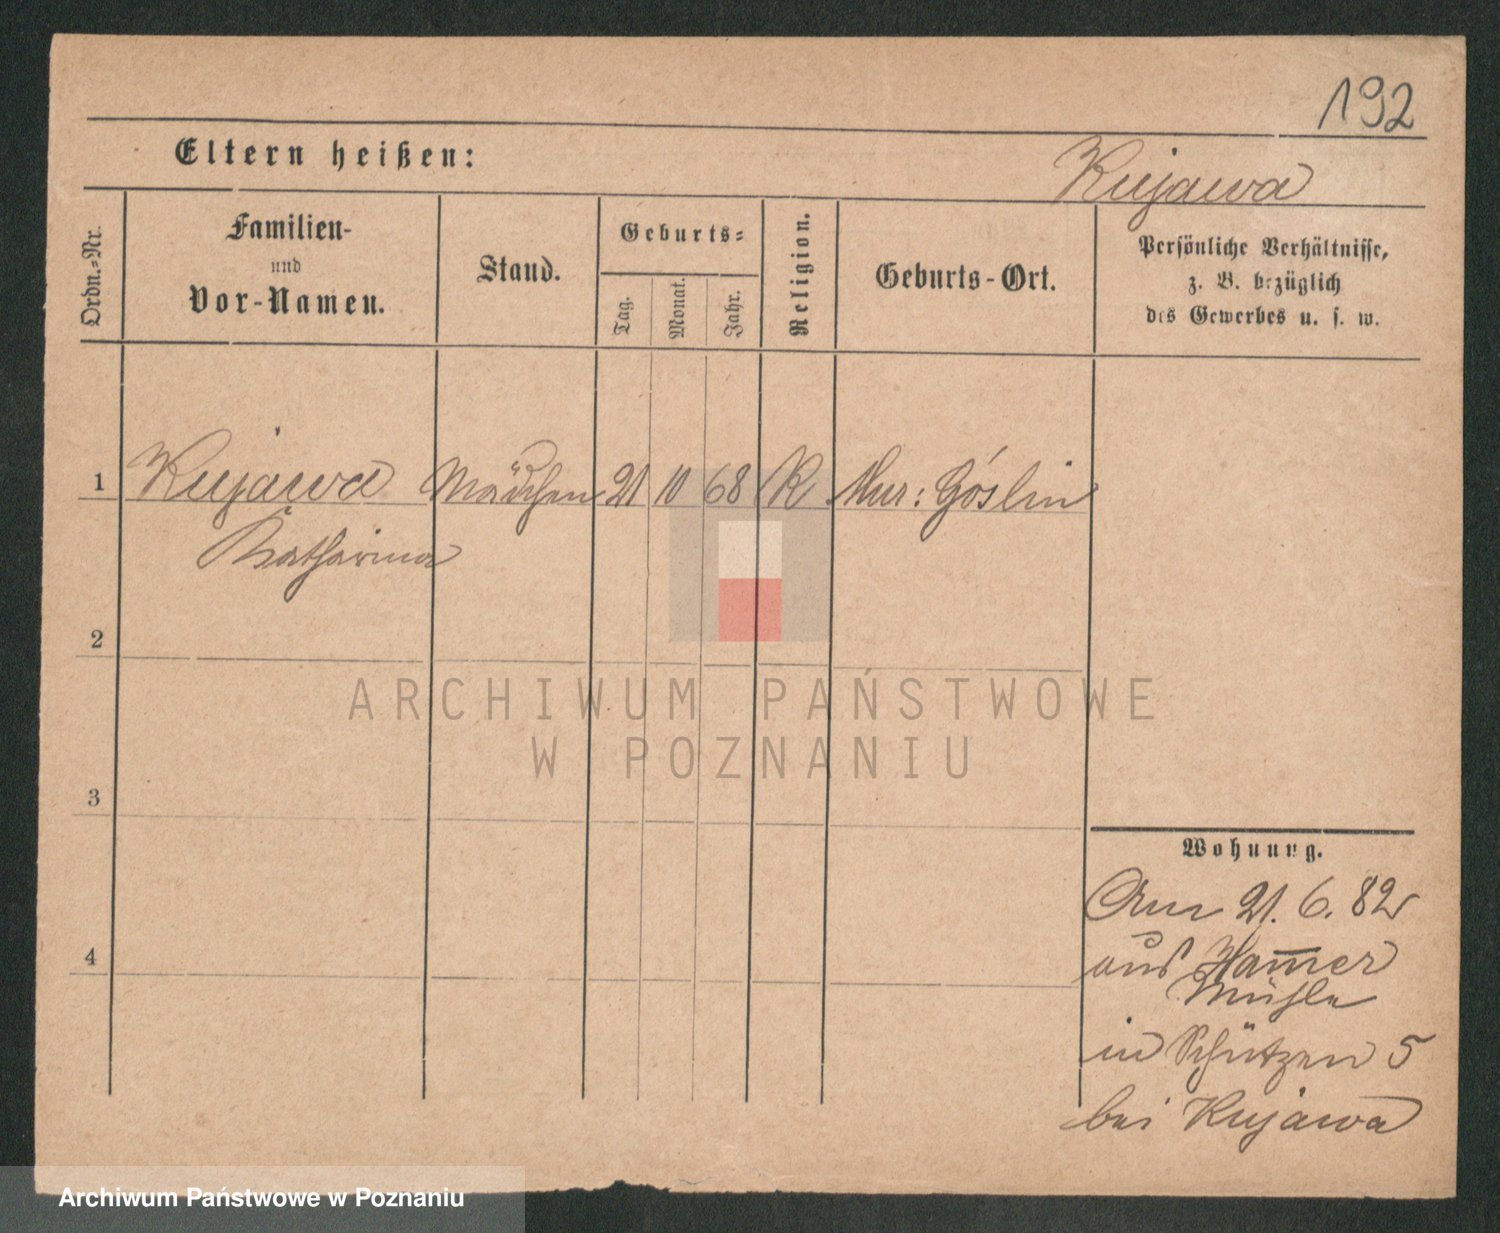 192
Eltern heißen:
Kujawa
Ordn.-Nr.
Familien-
und
Vor-Namen.
Stand.
Geburts-
Tag.
Monat.
Jahr.
Religion.
Geburts-Ort.
Persönliche Verhältnisse,
z. B. bezüglich
des Gewerbes u. s. w.
1 Kujawa Mädchen 21 10 68 K Mur: Góslin
Katharina
2
ARCHIWUM PAŃSTWOWE
W POZNANIU
3
Wohnung.
Am 21. 6. 82
4
aus Ham̅er
Mühle
in Schützen 5
bei Kujawa
Archiwum Państwowe w Poznaniu